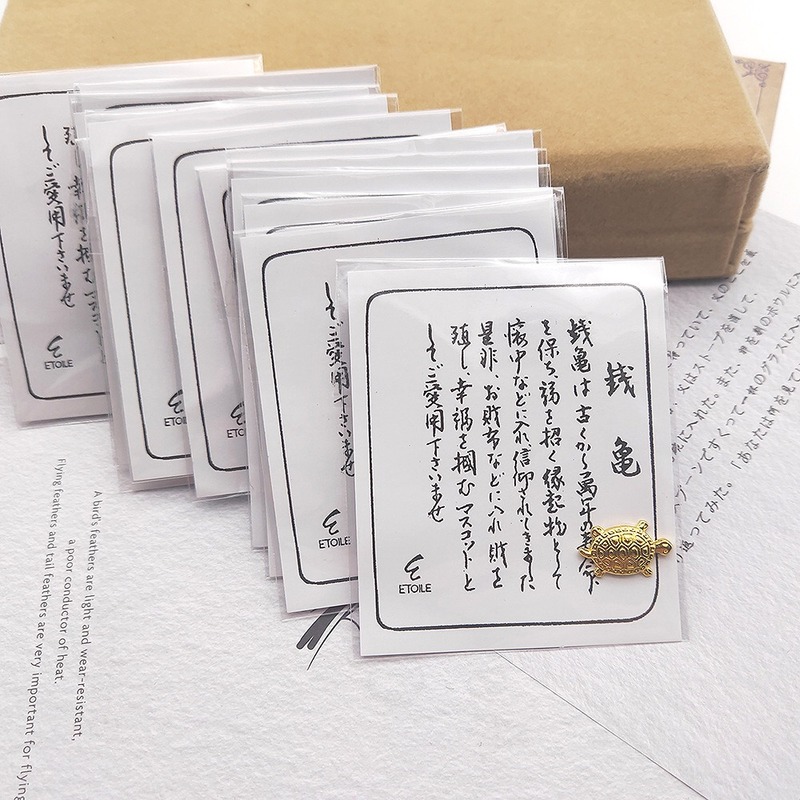 銭亀
銭亀は古くから萬年の寿命
を保ち、福を招く縁起物として
懐中などに入れ、信仰されてきました
是非、お財布などに入れ財を
殖し、幸福を掴むマスコットと
してご愛用下さいませ
ETOILE
してご愛用下さいませ
ETOILE
ETOILE
してご愛用下さいませ
ETOILE
A bird's feathers are light and wear-resistant,
a poor conductor of heat.
Flying feathers and tail feathers are very important for flying
持っていて、
父はストーブを通して、
に入れた。また、卵を銀のボウルに入
スプーンですくって一杯のグラスに入れ
り返ってみた。「あなたは何を見て